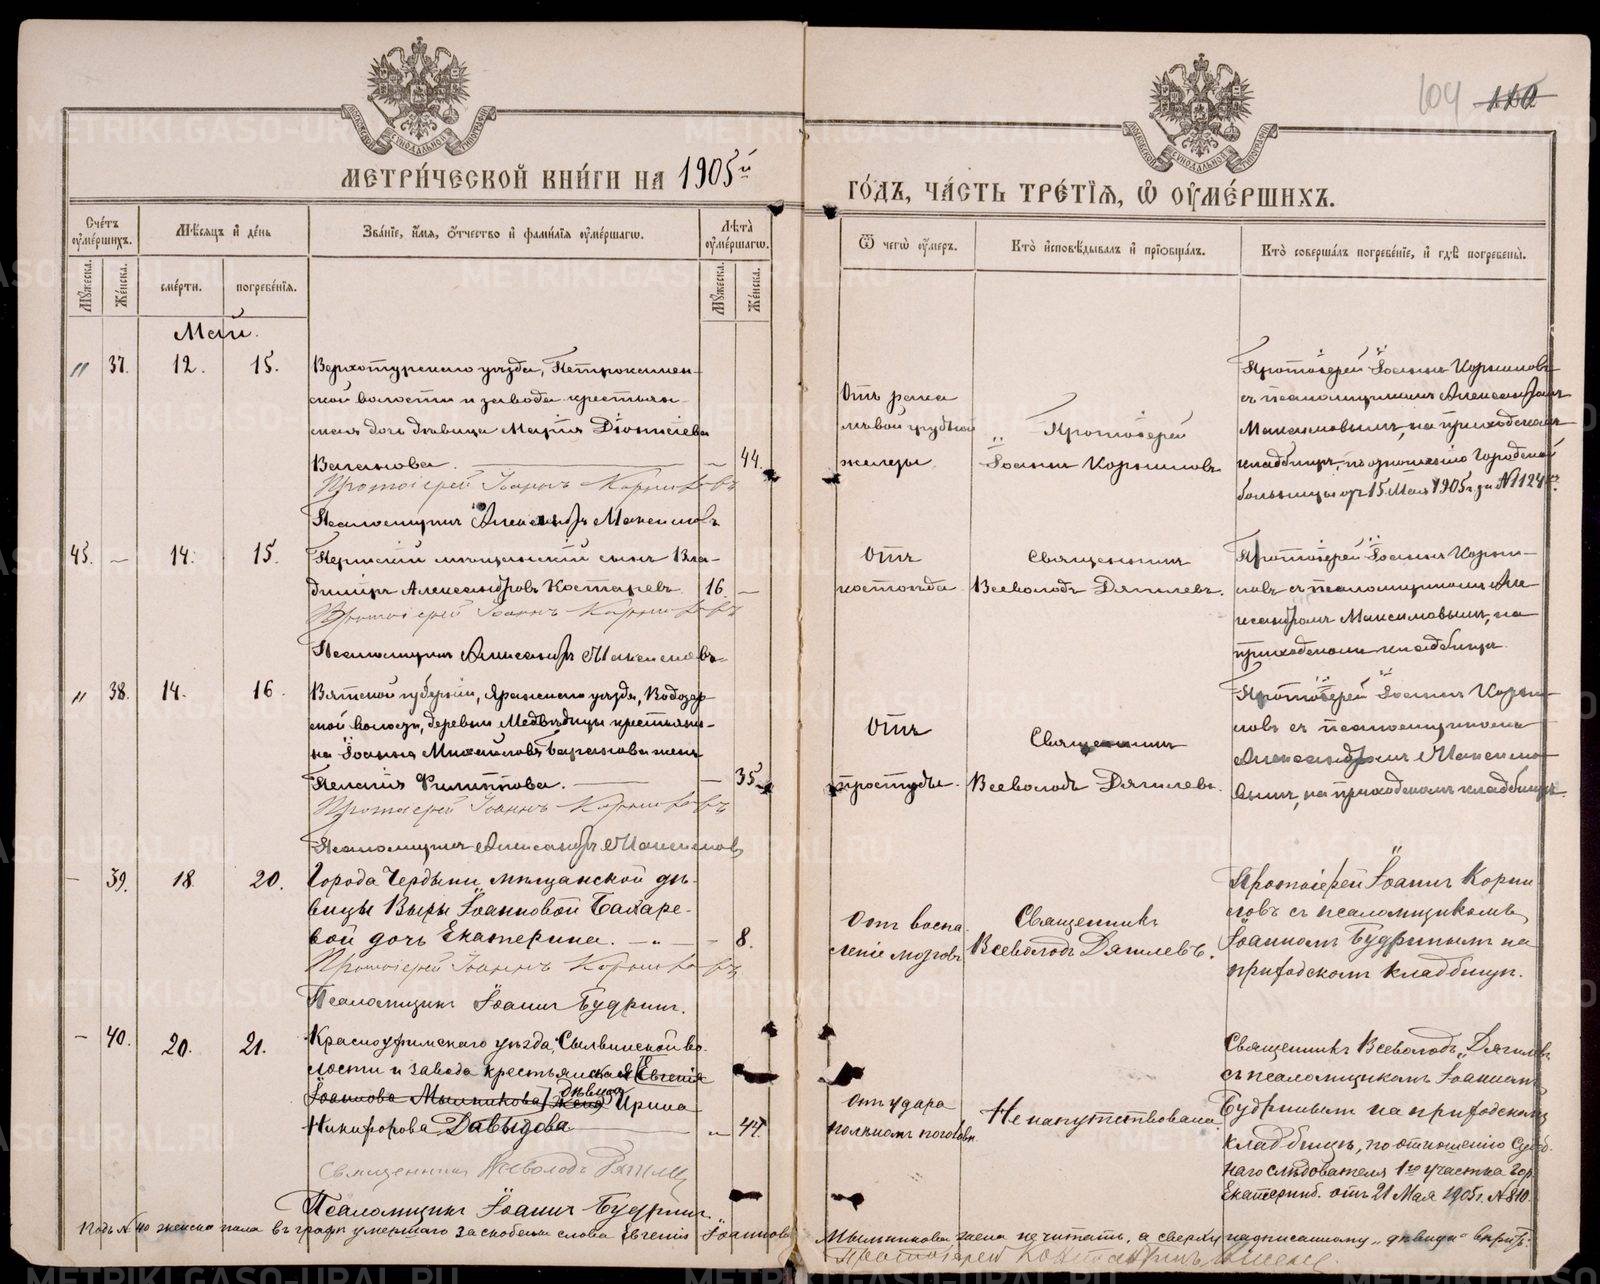 104 110
МЕТРИ́ЧЕСКОЙ КНИ́ГИ НА 1905й
ГО́ДЪ, ЧА́СТЬ ТРЕ́ТІѦ, Ѡ ОУМЕ́РШИХЪ.
Сче́тъ оуме́ршихъ.
Мѣ́сяцъ и де́нь
Зва́ніе, и́мя, о́тчество и фами́лія оуме́ршагѡ.
Лѣ́та оуме́ршагѡ.
Ѿ чегѡ̀ оу́меръ.
Кто̀ исповѣ́дывалъ и пріобща́лъ.
Кто̀ соверша́лъ погребе́ніе, и гдѣ̀ погребены̀.
Мꙋ́жеска.
Же́нска.
сме́рти.
погребе́нія.
Мꙋ́жеска.
Же́нска.
Май.
" 37. 12. 15.
Верхотурскаго уѣзда, Петрокамен-
ской волости и завода крестьян-
ская дочь девица Марія Діонисіева
Ваганова. 44.
Протоіерей Іоаннъ Корниловъ
Псаломщикъ Александръ Максимовъ
Отъ рака
лѣвой грудной
железы
Протоіерей
Іоаннъ Корниловъ
Протоіерей Іоаннъ Корниловъ
съ псаломщикомъ Александромъ
Максимовымъ, на приходскомъ
кладбищѣ, по отношенію Городской
больницы отъ 15 Мая 1905 г за № 1124
45. — 14. 15.
Пермскій мѣщанскій сынъ Вла-
диміръ Александровъ Костаревъ 16. —
Протоіерей Іоаннъ Корниловъ
Псаломщикъ Александръ Максимовъ
Отъ
костоѣда
Священникъ
Всеволодъ Дягилевъ.
Протоіерей Іоаннъ Корни-
ловъ съ псаломщикомъ Але
ксандромъ Максимовымъ, на
приходскомъ кладбищѣ
" 38. 14. 16.
Вятской губерніи, Яранскаго уѣзда, Водозер-
ской волости, деревни Медвѣдицы крестьяни-
на Іоанна Михайлова Баранова жена
Пелагія Филиппова. — 35
Протоіерей Іоаннъ Корниловъ
Псаломщикъ Александръ Максимовъ
Отъ
простуды.
Священникъ
Всеволодъ Дягилевъ.
Протоіерей Іоаннъ Корни-
ловъ съ псаломщикомъ
Александромъ Максимо-
вымъ, на приходскомъ кладбищѣ.
— 39. 18. 20.
Города Чердыни мѣщанской дѣ-
вицы Вѣры Іоанновой Бахаре-
вой дочь Екатерина. — " — 8.
Протоіерей Іоаннъ Корниловъ
Псаломщикъ Іоаннъ Будринъ.
Отъ воспа
леніе мозговъ
Священникъ
Всеволодъ Дягилевъ.
Протоіерей Іоаннъ Корни-
ловъ съ псаломщикомъ
Іоанномъ Будринымъ на
приходскомъ кладбищѣ.
— 40. 20. 21.
Красноуфимскаго уѣзда, Сылвинской во-
лости и завода крестьянская [Евгенія
Іоаннова Мыльникова] жена дѣвица Ирина
Никифорова Давыдова 44.
Священникъ Всеволодъ Дягилевъ
Псаломщикъ Іоаннъ Будринъ.
Отъ удара
Не напутствована.
Священникъ Всеволодъ Дягилевъ
съ псаломщикомъ Іоанномъ
Будринымъ на приходскомъ
кладбищѣ, по отношенію Судеб-
наго слѣдователя 1го участка гор.
Екатеринб. отъ 21 Мая 1905 г. № 810.
Подъ № 40 женска пола въ графѣ умершаго за скобами слова Евгенія Іоаннова
Мыльникова жена не читать, а сверху надписанному „дѣвица" вѣрить.
Протоіерей